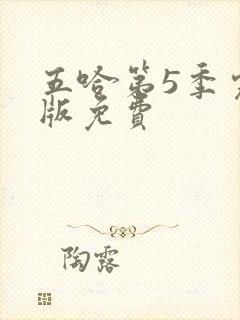 五哈第5季
版免費
陶露